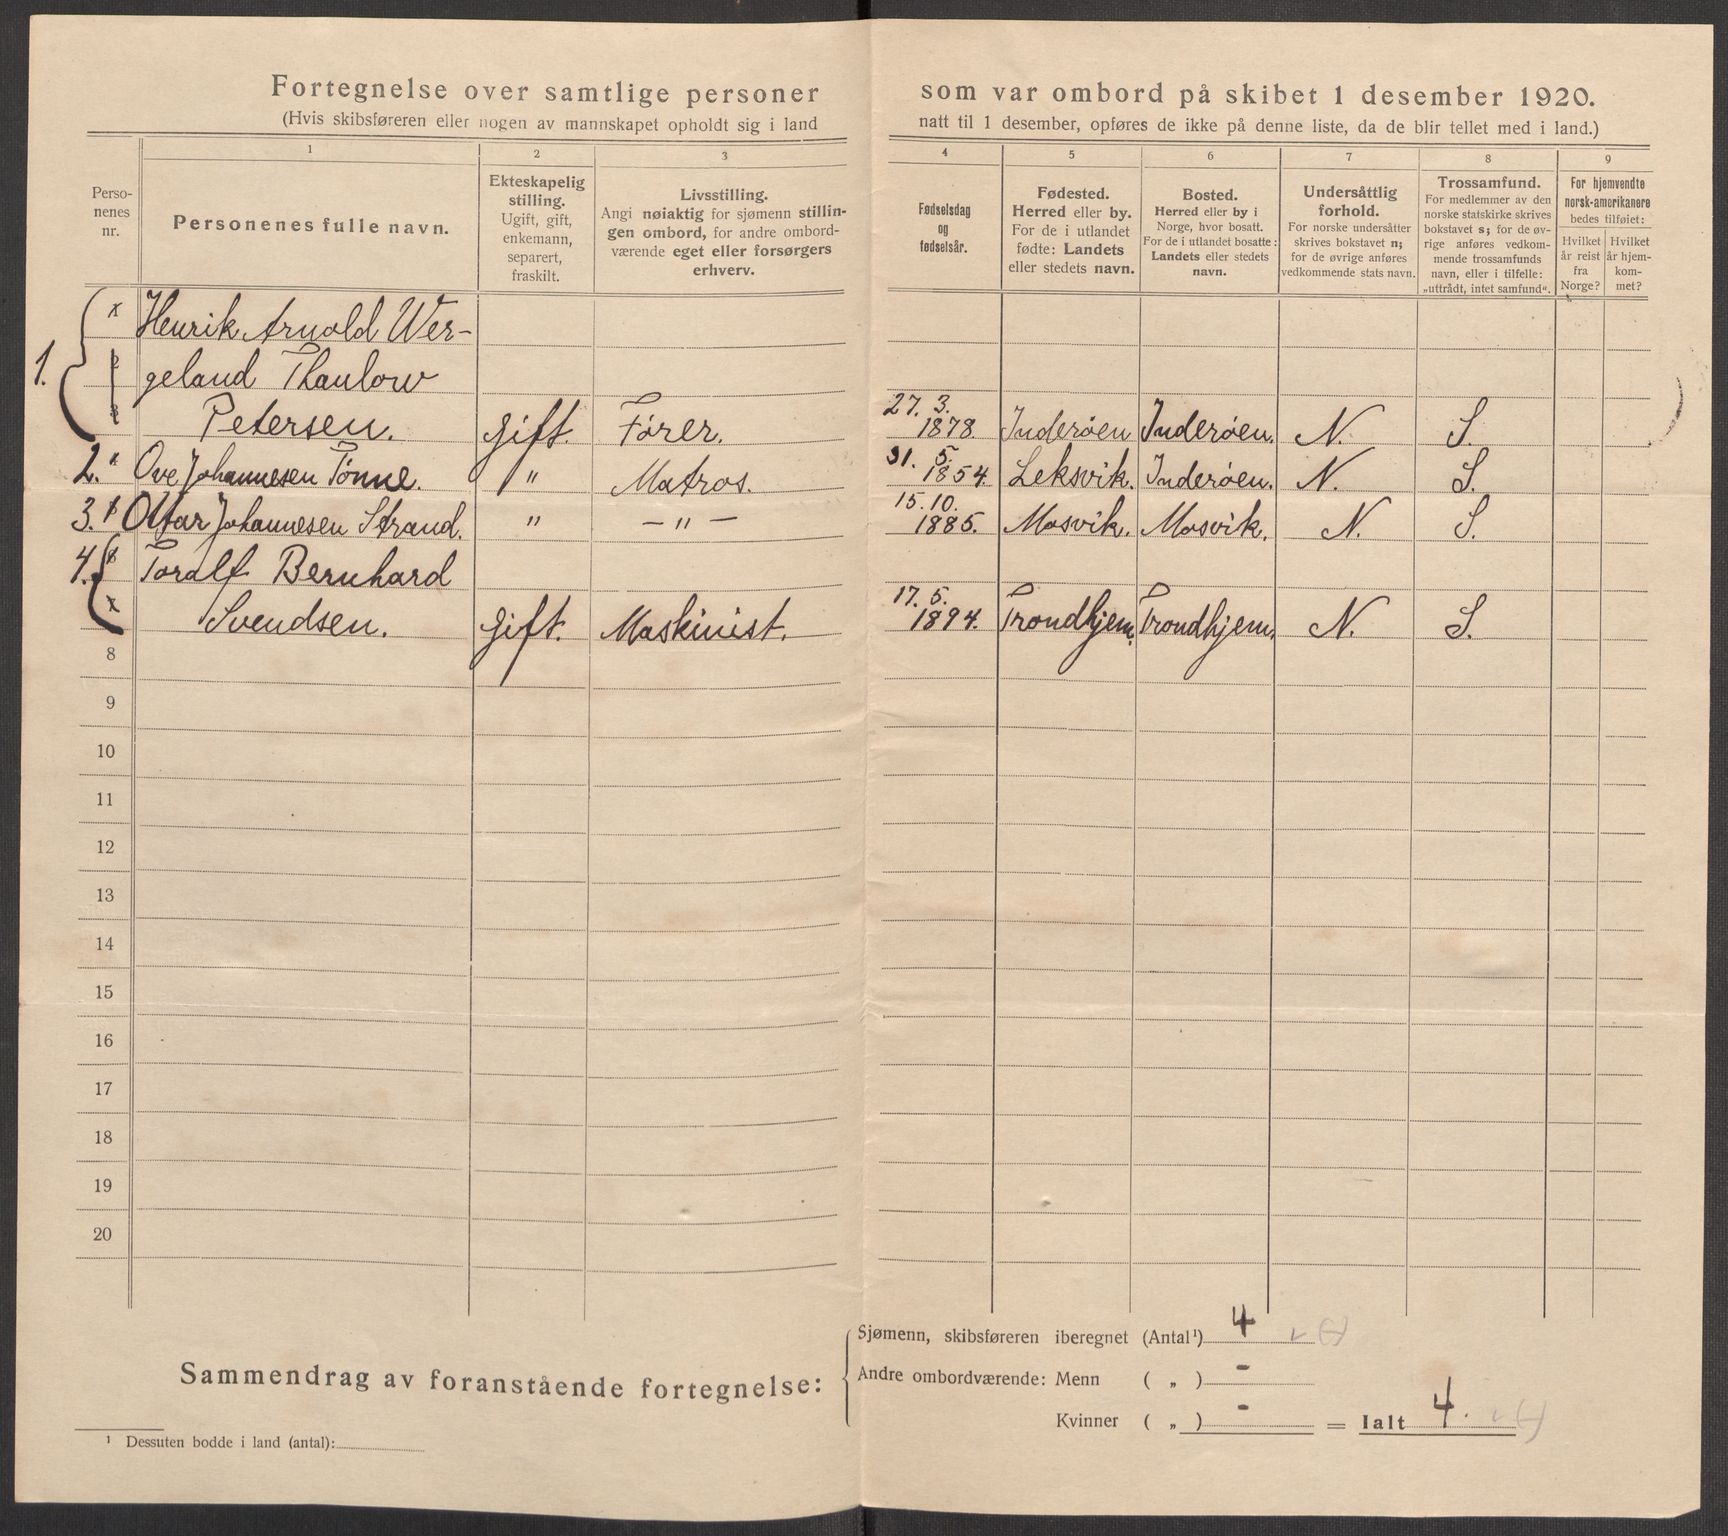 Fortegnelse over samtlige personer som var ombord på skibet 1 desember 1920.
(Hvis skibsføreren eller nogen av mannskapet opholdt sig i land natt til 1 desember, opføres de ikke på denne liste, da de blir tellet med i land.)
Personenes nr.
1
Personenes fulle navn.
2
Ekteskapelig
stilling.
Ugift, gift,
enkemann,
separert,
fraskilt.
3
Livsstilling.
Angi nøiaktig for sjømenn stillin-
gen ombord, for andre ombord-
værende eget eller forsørgers
erhverv.
4
Fødselsdag
og
fødselsår.
5
Fødested.
Herred eller by.
For de i utlandet
fødte: Landets
eller stedets navn.
6
Bosted.
Herred eller by i
Norge, hvor bosatt.
For de i utlandet bosatte:
Landets eller stedets
navn.
7
Undersåttlig
forhold.
For norske undersåtter
skrives bokstavet n;
for de øvrige anføres
vedkommende stats navn.
8
Trossamfund.
For medlemmer av den
norske statskirke skrives
bokstavet s; for de øv-
rige anføres vedkom-
mende trossamfunds
navn, eller i tilfelle:
„uttrådt, intet samfund".
9
For hjemvendte
norsk-amerikanere
bedes tilføiet:
Hvilket
år reist
fra
Norge?
Hvilket
år hjem-
kom-
met?
1. Henrik Arnold Wer-
geland Thaulow
Petersen. Gift. Fører. 27. 3. 1878. Inderøen Inderøen. N. S.
2. Ove Johannesen Tønne. " Matros. 31. 5. 1854. Leksvik. Inderøen. N. S.
3. Ottar Johannesen Strand. " — " — 15. 10. 1885. Mosvik. Mosvik. N. S.
4. Toralf Bernhard
Svendsen. Gift. Maskinist. 17. 5. 1894. Trondhjem. Trondhjem. N. S.
8
9
10
11
12
13
14
15
16
17
18
19
20
Sammendrag av foranstående fortegnelse:
Sjømenn, skibsføreren iberegnet (Antal¹) 4
Andre ombordværende: Menn ( „ ) -
Kvinner ( „ ) - = Ialt 4.
¹ Dessuten bodde i land (antal):